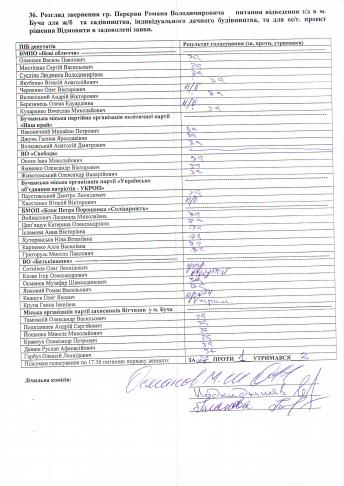 36. Розгляд звернення гр. Перерви Романа Володимировича питання відведення з/д в м.
Буча для ж/б та садівництва, індивідуального дачного будівництва, та для ос/г. проект
рішення Відмовити в задоволені заяви.
ПІБ депутатів Результат голосування (за, проти, утримався)
БМПО «Нові обличчя»
Олексюк Василь Павлович За
Мостіпака Сергій Васильович За
Сусліна Людмила Володимирівна За
Якубенко Віталій Анатолійович За
Черненко Олег Вікторович н/б
Великодний Андрій Вікторович За
Березинець Олена Едуардівна н/б
Кухаренко Вячеслав Миколайович За
Бучанська міська партійна організація політичної партії
«Наш край»
Наконечний Михайло Петрович За
Джунь Галина Ярославівна За
Волковський Анатолій Дмитрович За
ВО «Свобода»
Оксюк Іван Миколайович За
Яменко Олександр Вікторович За
Животовський Олександр Валерійович За
Бучанська міська організація партії «Українське
об'єднання патріотів - УКРОП»
Паустовський Дмитро Леонідович За
Хвостенко Віталій Вікторович н/б
БМОП «Блок Петра Порошенка «Солідарність»
Войналович Людмила Миколаївна За
Циганщук Катерина Олександрівна За
Іламаном Анна Вікторівна За
Хуторянська Ніна Віталіївна За
Карпенко Алла Василівна За
Григорець Микола Павлович За
ВО «Батьківщина»
Сотніков Олег Леонідович утр.
Козак Ігор Олександрович
Османов Музафар Шамсидинович За
Янковий Роман Васильович За
Кващук Олег Якович проти
Крупа Ганна Іванівна утрим.
Міська організація партії захисників Вітчизни у м. Буча
Таможній Олександр Васильович За
Подкідишев Андрій Сергійович За
Йощенко Микола Миколайович За
Кравчук Олександр Петрович За
Данюк Руслан Афанасійович За
Горбуз Олексій Леонідович
Підсумки голосування по 17.36 питанню порядку денного: ЗА 27 ПРОТИ 1 УТРИМАВСЯ 2
Лічильна комісія: Османов М.Ш.
Подкидышев